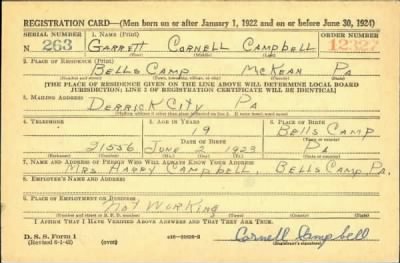 REGISTRATION CARD—(Men born on or after January 1, 1922 and on or before June 30, 1924)
SERIAL NUMBER 1. NAME (Print) ORDER NUMBER
N 263 GARRETT CORNELL CAMPBELL 12327
(First) (Middle) (Last)
2. PLACE OF RESIDENCE (Print)
BELLS CAMP MCKEAN PA
(Number and street) (Town, township, village, or city) (County) (State)
[THE PLACE OF RESIDENCE GIVEN ON THE LINE ABOVE WILL DETERMINE LOCAL BOARD
JURISDICTION; LINE 2 OF REGISTRATION CERTIFICATE WILL BE IDENTICAL]
3. MAILING ADDRESS
DERRICK CITY PA
4. TELEPHONE 5. AGE IN YEARS 6. PLACE OF BIRTH
19 BELLS CAMP
DATE OF BIRTH
21556 JUNE 2 1923 PA
7. NAME AND ADDRESS OF PERSON WHO WILL ALWAYS KNOW YOUR ADDRESS
MRS. HARRY CAMPBELL, BELLS CAMP PA.
8. EMPLOYER'S NAME AND ADDRESS
9. PLACE OF EMPLOYMENT OR BUSINESS
NOT WORKING
(Number and street or R. F. D. number) (Town) (County) (State)
I AFFIRM THAT I HAVE VERIFIED ABOVE ANSWERS AND THAT THEY ARE TRUE.
D. S. S. Form 1
(Revised 6-1-42) (over) Cornell Campbell
(Registrant's signature)